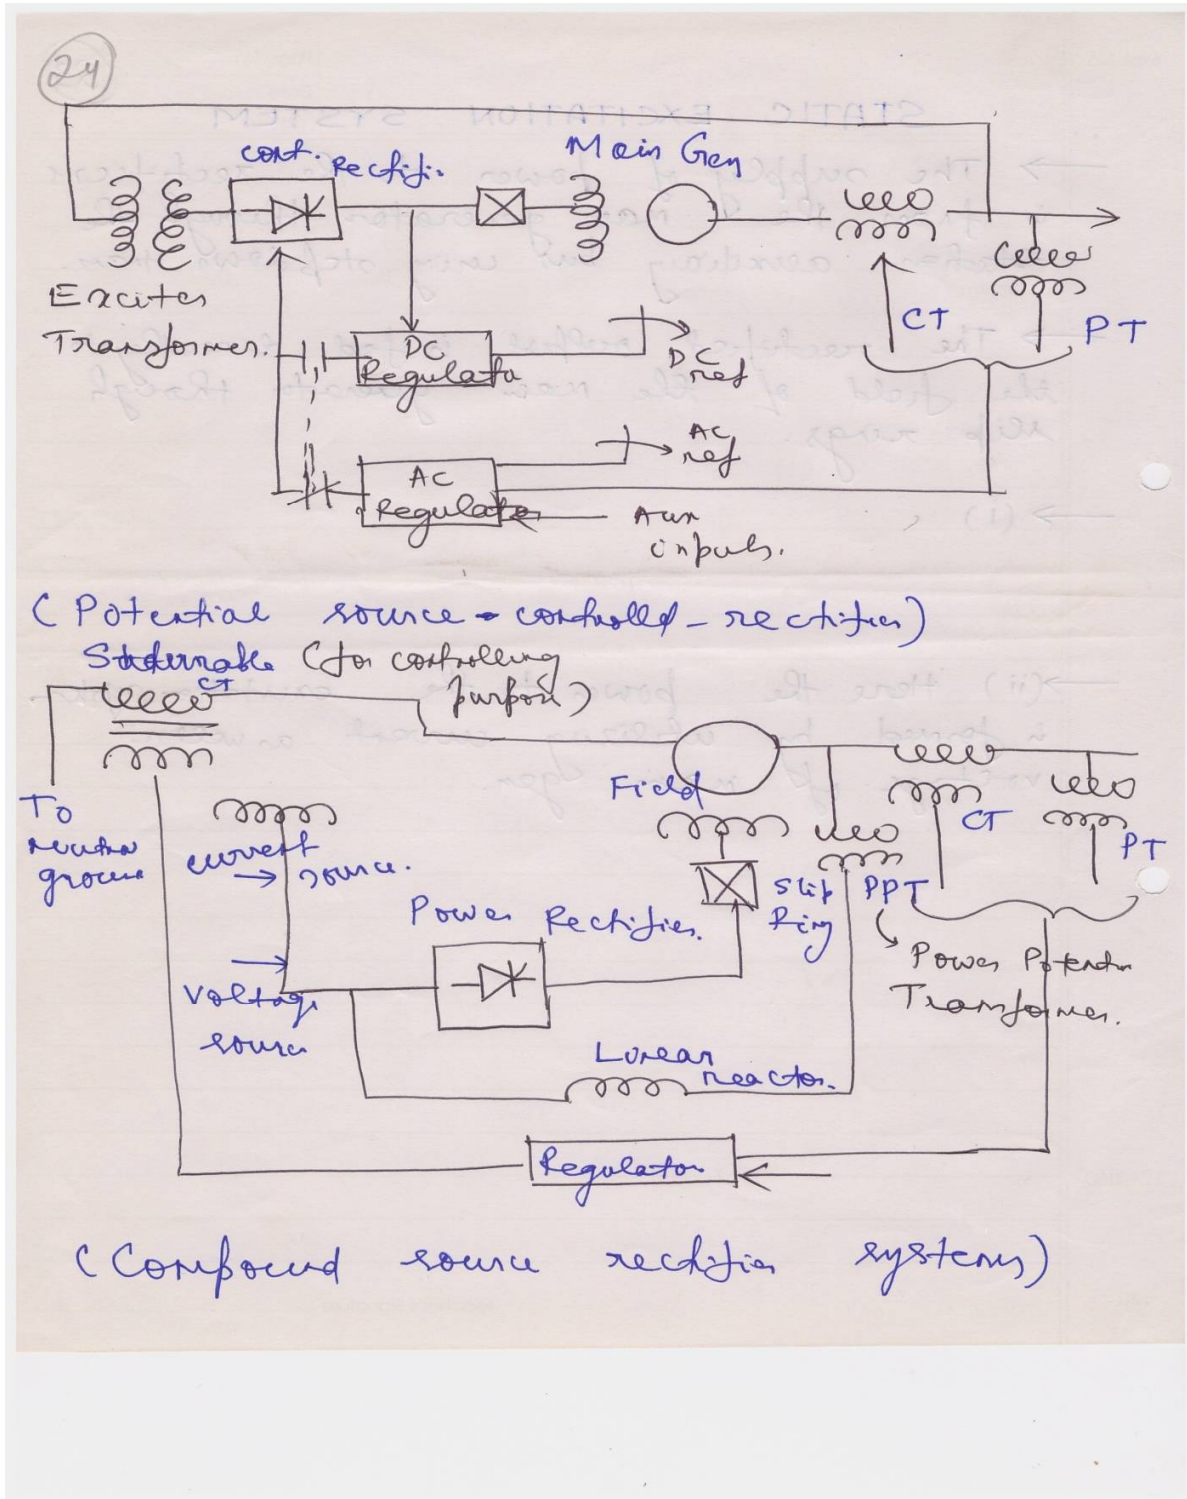 24
Cont. Rectifi.
Main Gen
Exciter
Transformer.
CT
PT
DC
Regulato
DC
ref
AC
Regulator
AC
ref
Aux
inputs.
(Potential source - controlled - rectifier)
(for controlling
purpose)
CT
To
neutral
ground
Field
current
source.
CT
PT
Slip
Ring
PPT
Power Rectifier.
Power Potential
Transformer.
Voltage
source
Linear
reactor.
Regulator
(Compound source rectifier systems)